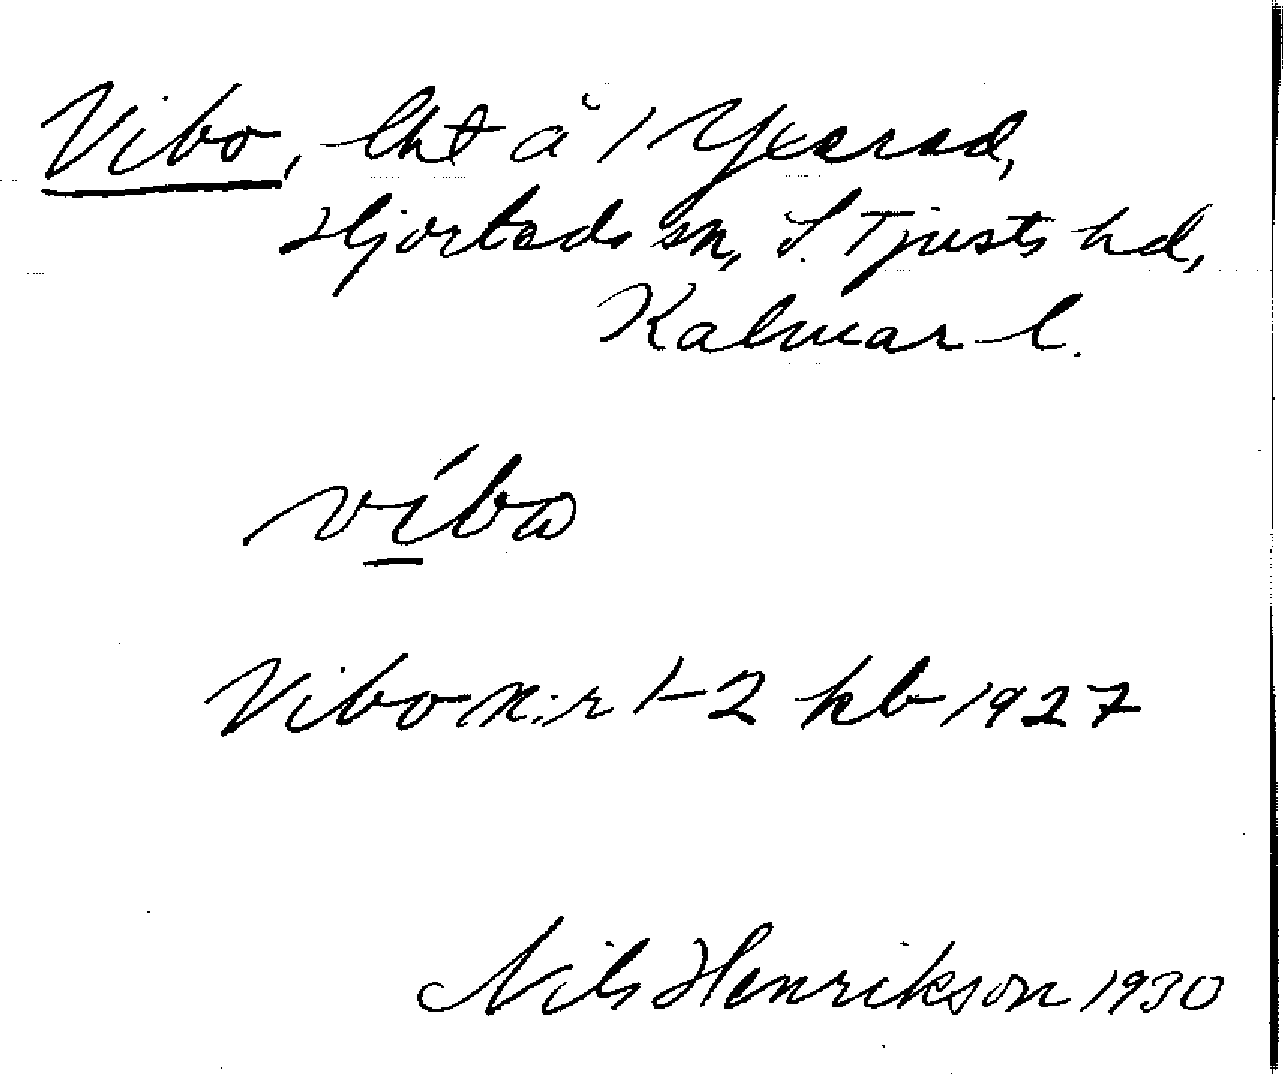 Vibo, lht å 1 Yxered,
Hjorteds sn, S. Tjusts hd,
Kalmar l.
víbω
Vibo n:r 1-2 kb 1927
Nils Henrikson 1930